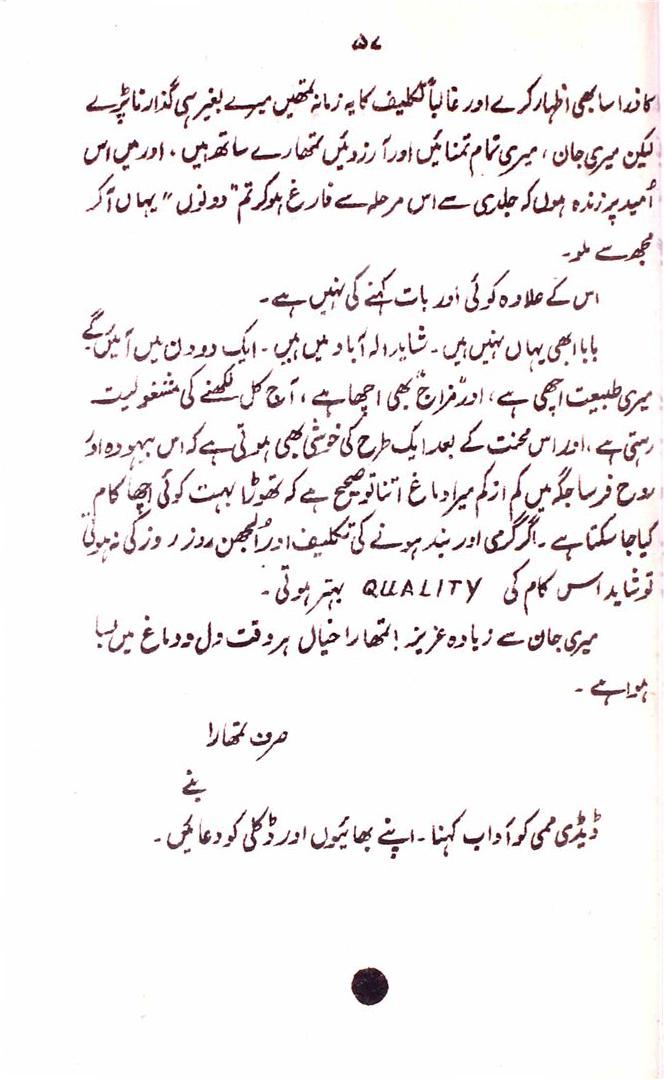 ۵۷
کا ذرا سا بھی اظہار کرے اور غالباً تکلیف کا یہ زمانہ تمھیں میرے بغیر ہی گذارنا پڑے
لیکن میری جان، میری تمام تمنائیں اور آرزوئیں تمھارے ساتھ ہیں ۔ اور میں اس
اُمید پر زندہ ہوں کہ جلدی سے اس مرحلہ سے فارغ ہو کر تم "دونوں" یہاں آ کر
مجھ سے ملو ۔
اس کے علاوہ کوئی اور بات کہنے کی نہیں ہے ۔
بابا ابھی یہاں نہیں ہیں ۔ شاید الہ آباد میں ہیں ۔ ایک دو دن میں آئیں گے
میری طبیعت اچھی ہے، اور "مزاج" بھی اچھا ہے، آج کل لکھنے کی مشغولیت
رہتی ہے، اور اس محنت کے بعد ایک طرح کی خوشی بھی ہوتی ہے کہ اس بیہودہ اور
روح فرسا جگہ میں کم از کم میرا دماغ اتنا تو صحیح ہے کہ تھوڑا بہت کوئی اچھا کام
کیا جا سکتا ہے ۔ اگر گرمی اور بند ہونے کی تکلیف اور اُلجھن روز روز کی نہ ہوتی
تو شاید اس کام کی QUALITY بہتر ہوتی ۔
میری جان سے زیادہ عزیز! تمھارا خیال ہر وقت دل و دماغ میں بسا
ہوا ہے ۔
صرف تمھارا
بنے
ڈیڈی ممی کو آداب کہنا ۔ اپنے بھائیوں اور ڈکی کو دعائیں ۔